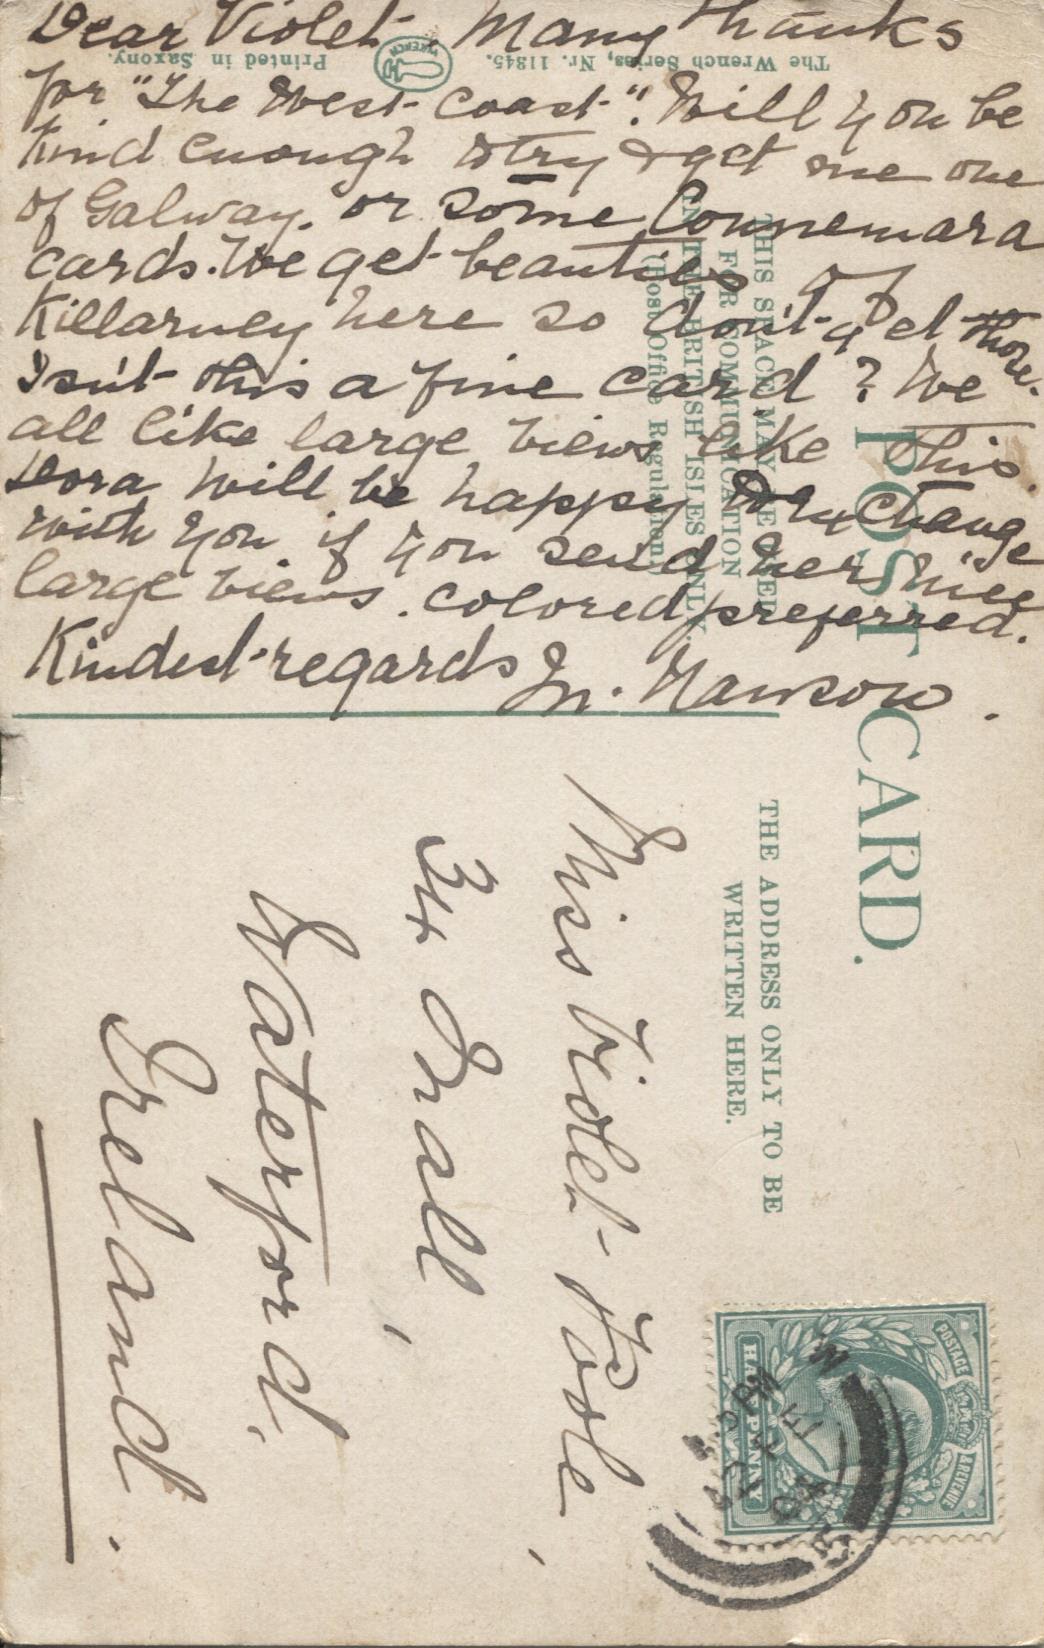 Dear Violet, Many thanks
for "The West Coast". Will you be
kind enough to try & get me one
of Galway, or some Connemara
cards. We get beauties of
Killarney here so don't get those.
Isn't this a fine card? We
all like large views like this.
Dora will be happy to exchange
with you if you send her nice
large views. colored preferred.
Kindest regards M.
The Wrench Series, Nr. 11845.
WRENCH
Printed in Saxony.
POST CARD.
THIS SPACE MAY BE USED
FOR COMMUNICATION
IN THE BRITISH ISLES ONLY.
(Post Office Regulation.)
THE ADDRESS ONLY TO BE
WRITTEN HERE.
Miss Violet Poole,
34 Mall,
Waterford,
Ireland.
POSTAGE & REVENUE
HALFPENNY